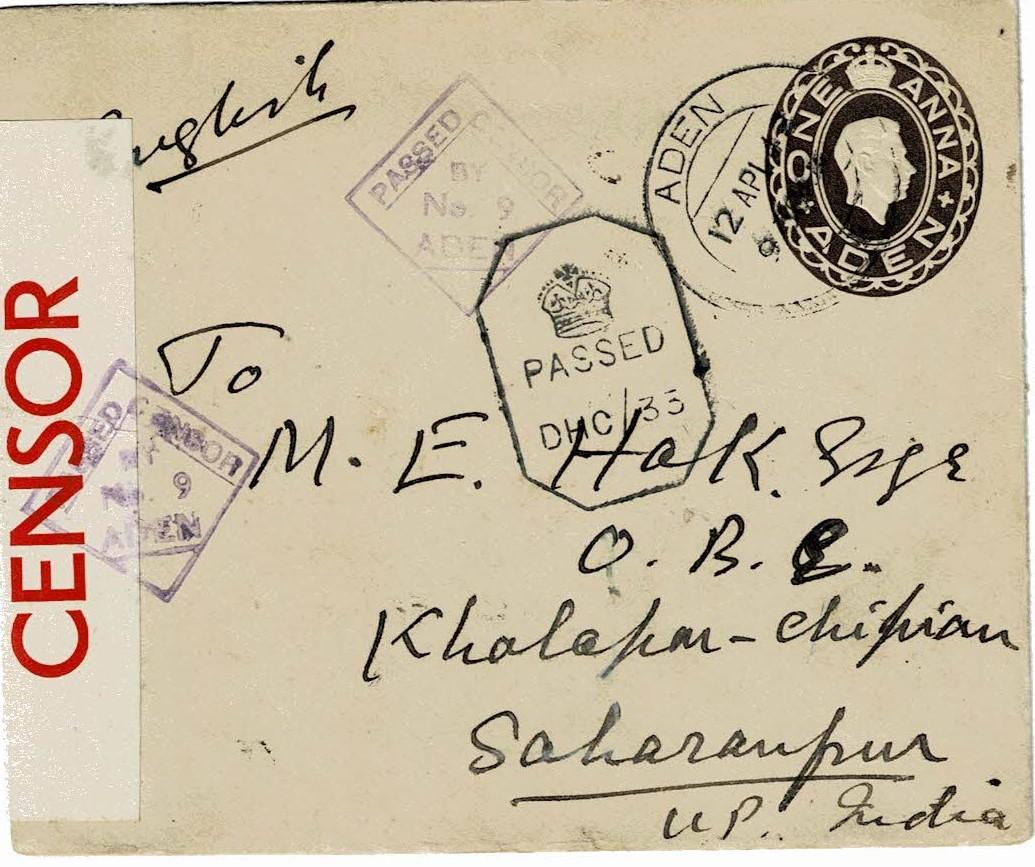 English
PASSED CENSOR
BY
No. 9
ADEN
ADEN
12 AP
ONE ANNA
ADEN
PASSED
DHC/33
CENSOR
PASSED CENSOR
BY
No. 9
ADEN
To
M. E. Hak Esqe
O. B. E.
Kholapar-Chipian
Saharanpur
U.P. India